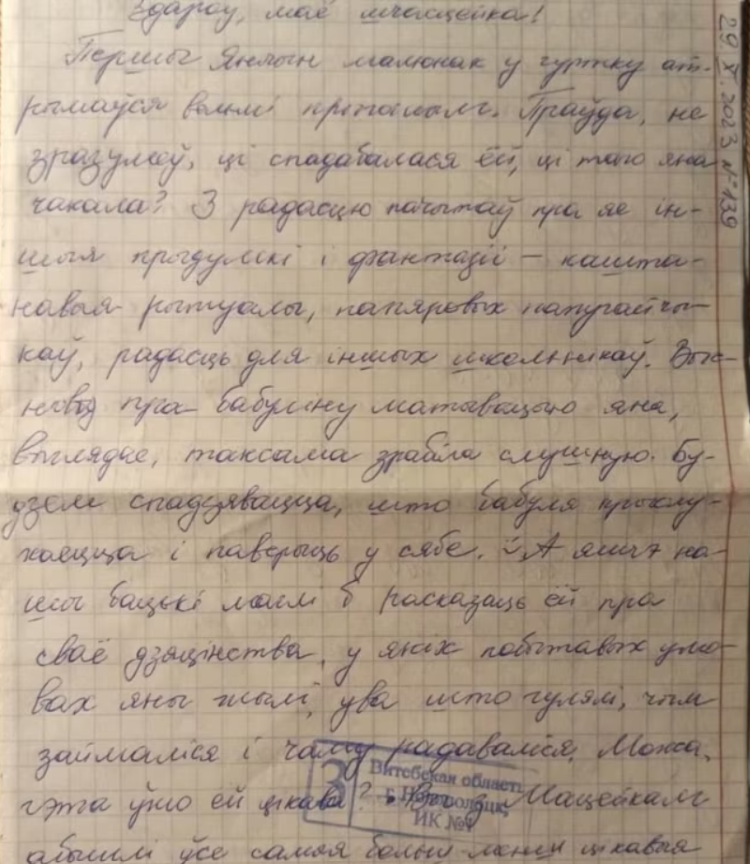 Здароў, маё шчасцейка!
Першы Янчын малюнак у гуртку ат-
рымаўся вельмі прыгожым. Праўда, не
зразумеў, ці спадабалася ёй, ці таго яна
чакала? З радасцю пачытаў пра яе ін-
шыя прыдумкі і фантазіі – кашта-
навыя рытуалы, папяровых папугайчы-
каў, радасць для іншых школьнікаў. Выс-
новы пра бабуліну матывацыю яна,
выглядае, таксама зрабіла слушную. Бу-
дзем спадзявацца, што бабуля
і паверыць у сябе. А яшчэ на-
шы бацькі маглі б расказаць ёй пра
сваё дзяцінства, у якіх побытавых умо-
вах яны жылі, ува што гулялі, чым
займаліся і чаму радаваліся. Можа,
гэта ўжо ёй цікава? Мы з Мацейкам
абышлі ўсе самыя больш-менш цікавыя
29.X.2023 №139
3
Витебская область
г. Новополоцк,
ИК №1